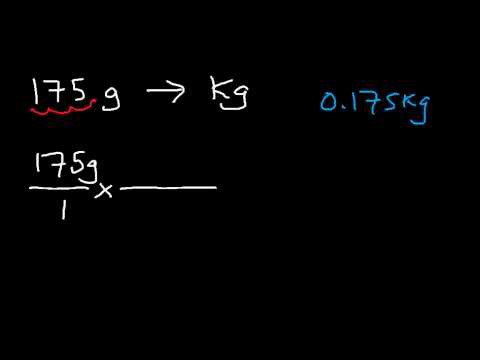 175. g → kg 0.175kg
175g/1 ×